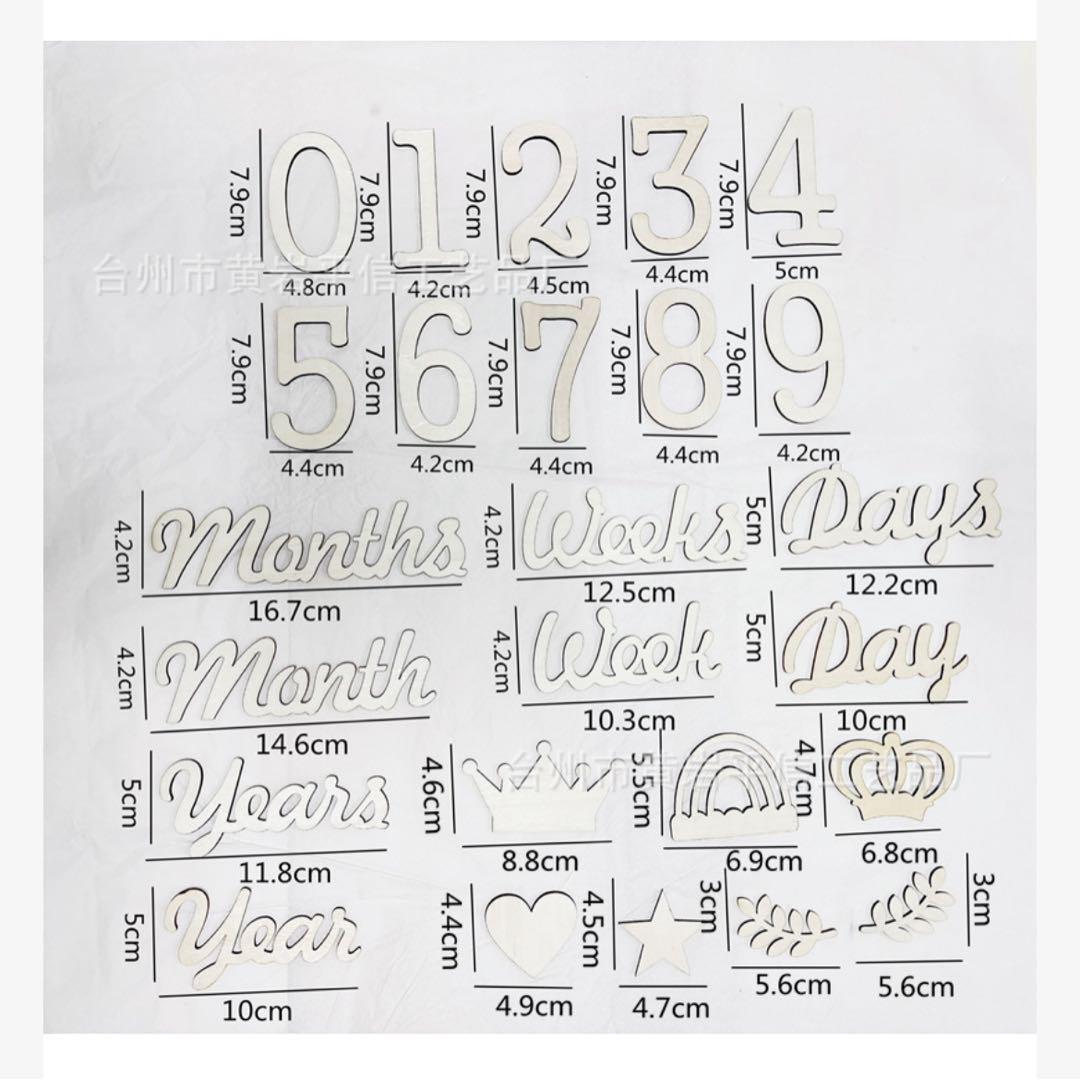 0 1 2 3 4
7.9cm 7.9cm 7.9cm 7.9cm 7.9cm
台州市黄岩 信工艺品厂
4.8cm 4.2cm 4.5cm 4.4cm 5cm
5 6 7 8 9
7.9cm 7.9cm 7.9cm 7.9cm 7.9cm
4.4cm 4.2cm 4.4cm 4.4cm 4.2cm
4.2cm Months 4.2cm Weeks 5cm Days
16.7cm 12.5cm 12.2cm
4.2cm Month 4.2cm Week 5cm Day
14.6cm 10.3cm 10cm
台州市黄岩 信工艺品厂
5cm Years 4.6cm 5.5cm 4.7cm
11.8cm 8.8cm 6.9cm 6.8cm
5cm Year 4.4cm 4.5cm 3cm 3cm
10cm 4.9cm 4.7cm 5.6cm 5.6cm